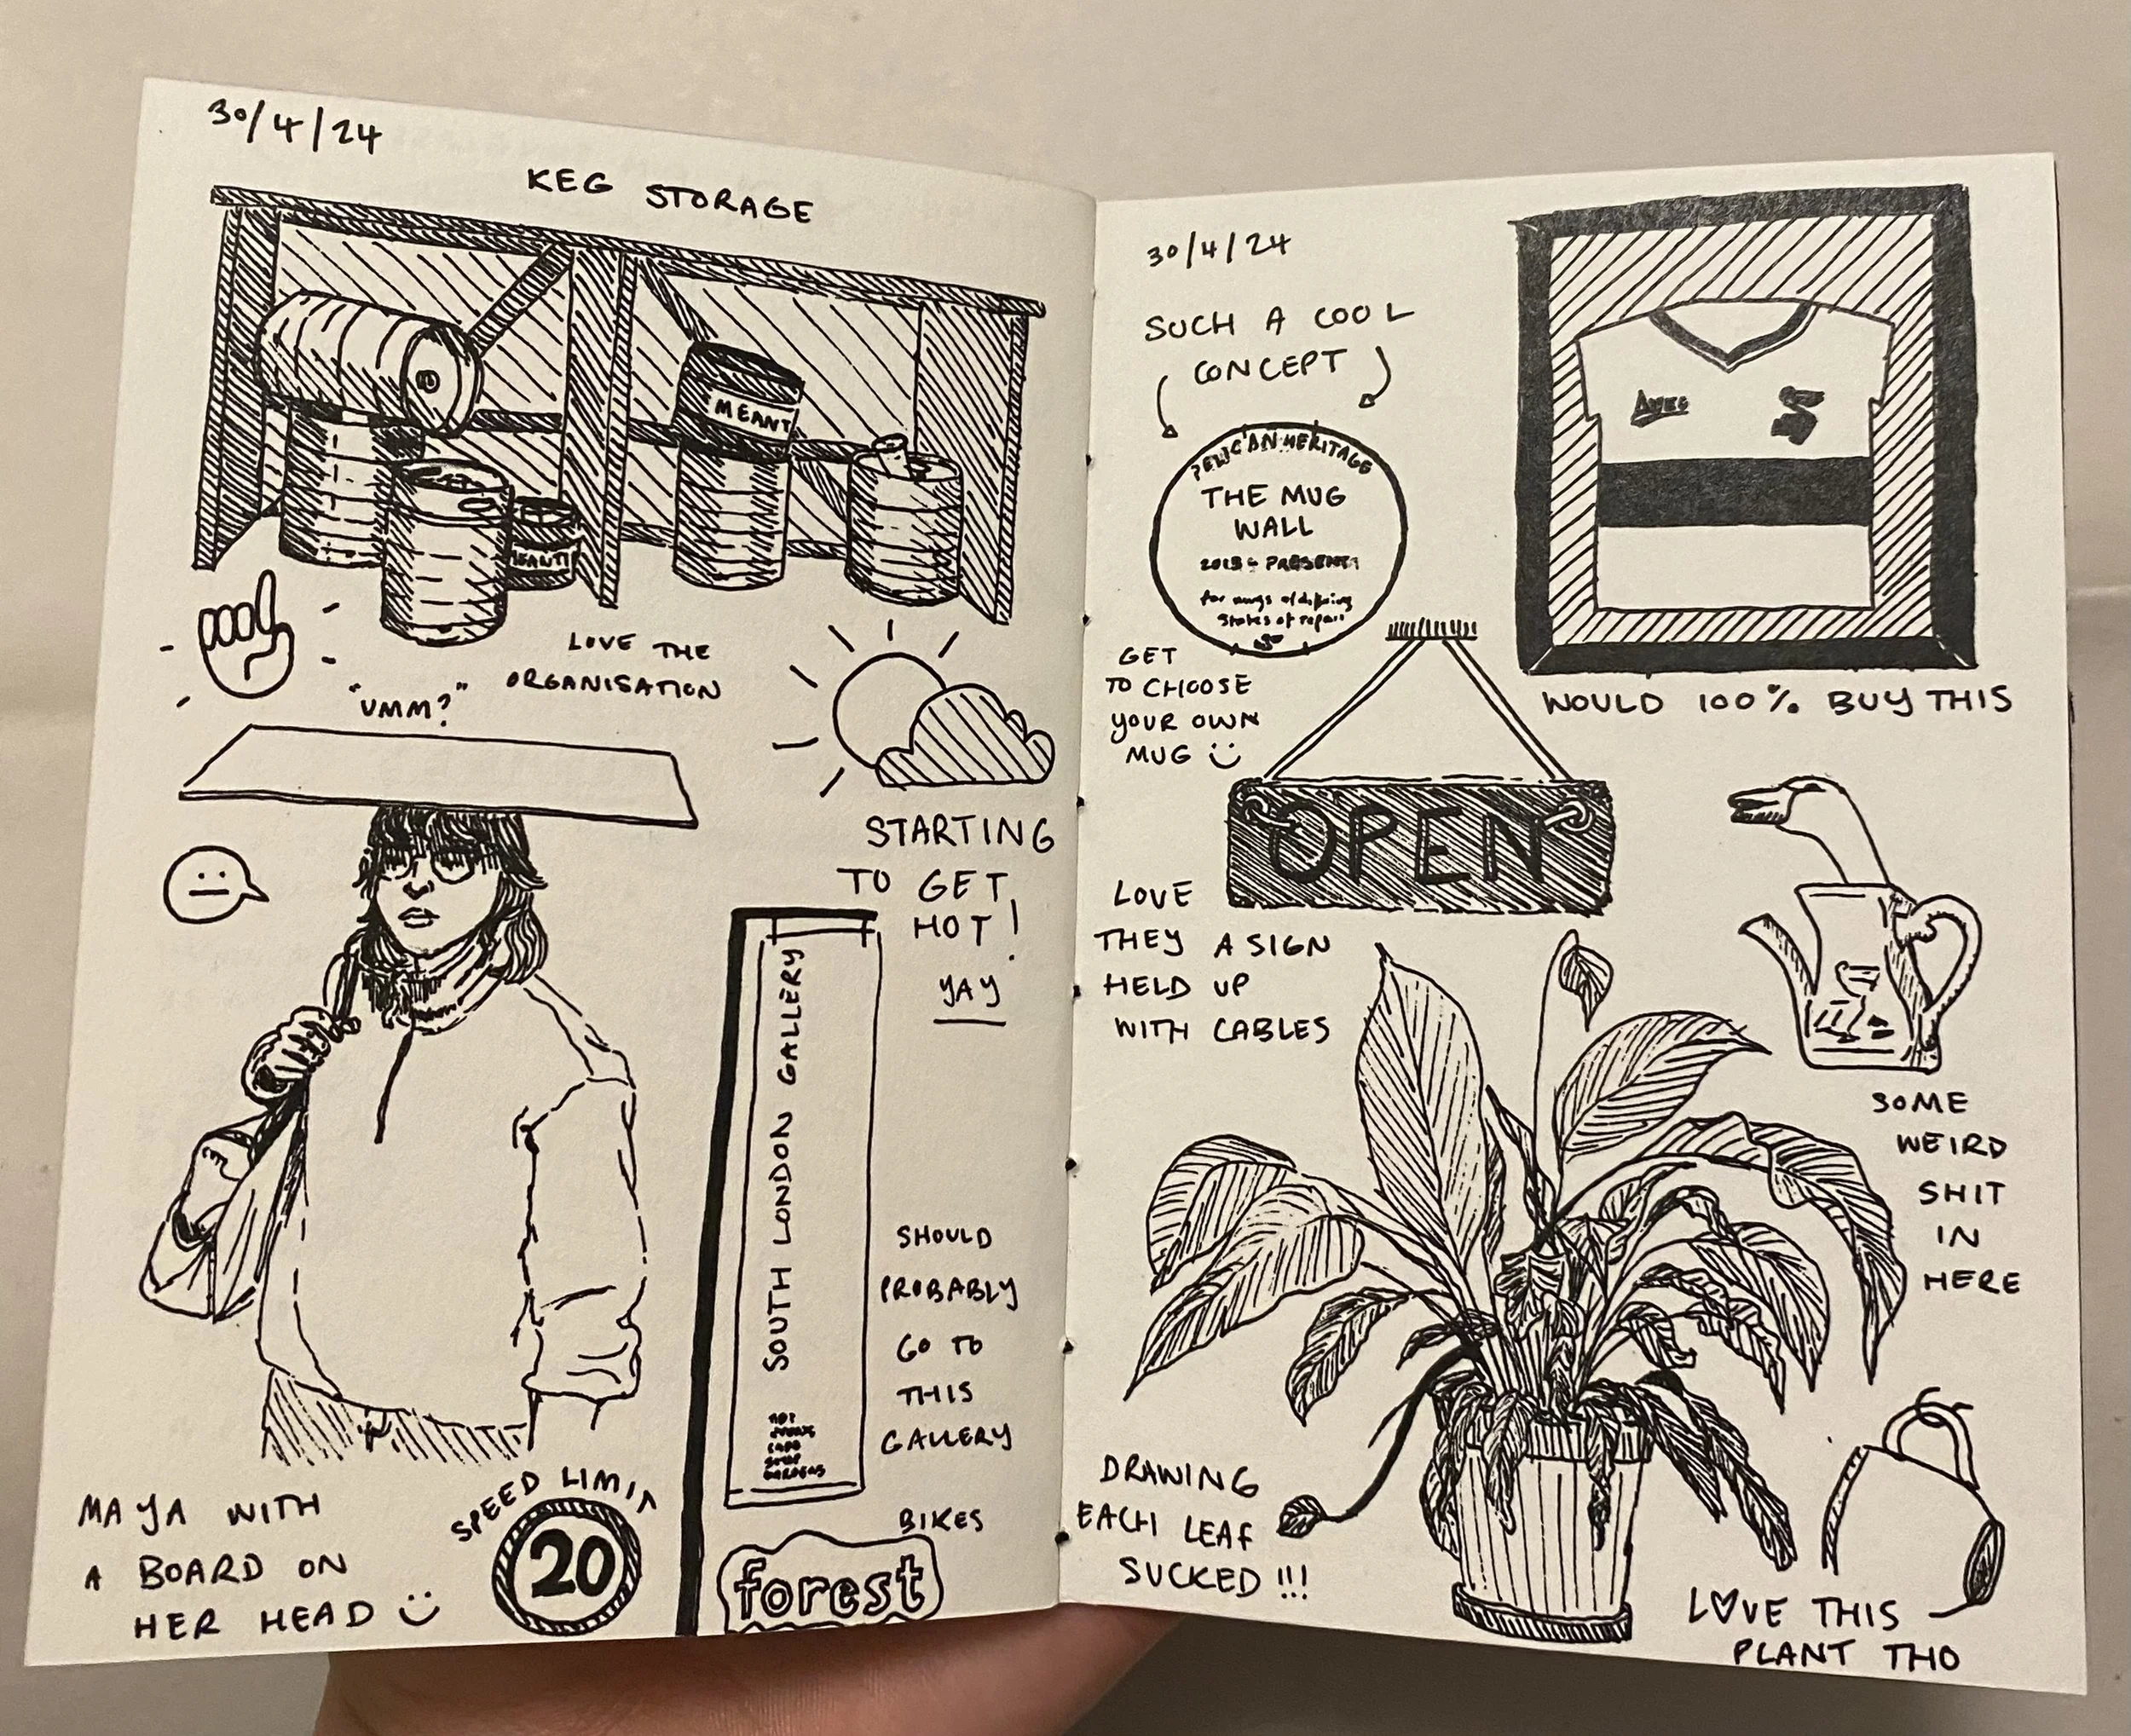 30/4/24
KEG STORAGE
MEANT
MEANTI
LOVE THE
ORGANISATION
"UMM?"
STARTING
TO GET
HOT!
YAY
SOUTH LONDON GALLERY
SHOULD
PROBABLY
GO TO
THIS
GALLERY
MAYA WITH
A BOARD ON
HER HEAD
SPEED LIMIT
20
BIKES
forest
30/4/24
SUCH A COOL
CONCEPT
PELICAN HERITAGE
THE MUG
WALL
PRESENT
for mugs of
states of repair
GET
TO CHOOSE
YOUR OWN
MUG
WOULD 100% BUY THIS
OPEN
LOVE
THEY A SIGN
HELD UP
WITH CABLES
SOME
WEIRD
SHIT
IN
HERE
DRAWING
EACH LEAF
SUCKED!!!
LOVE THIS
PLANT THO